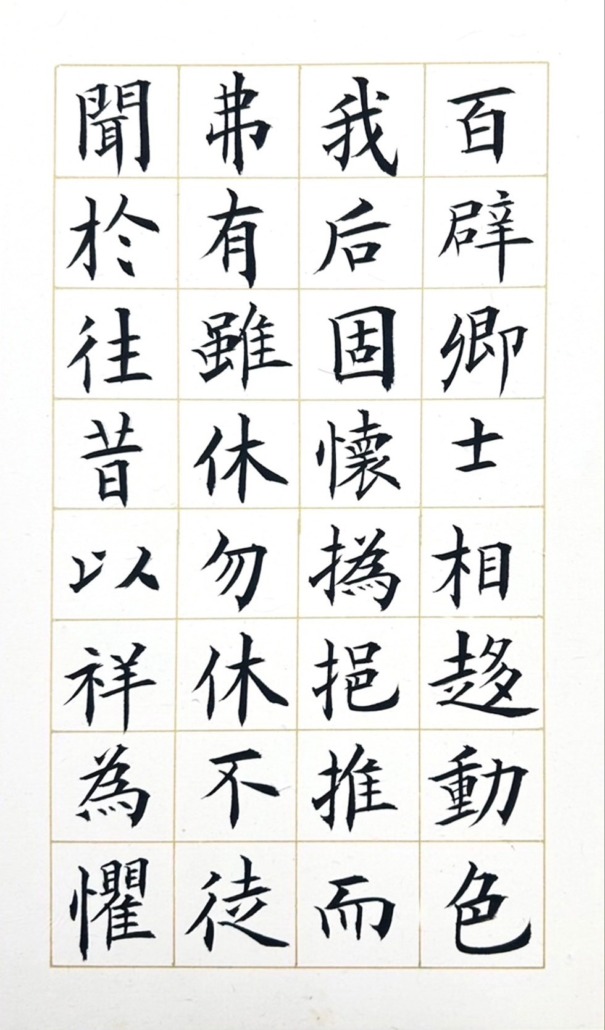 百辟卿士相趍動色
我后固懷撝挹推而
弗有雖休勿休不徒
聞於往昔以祥為懼